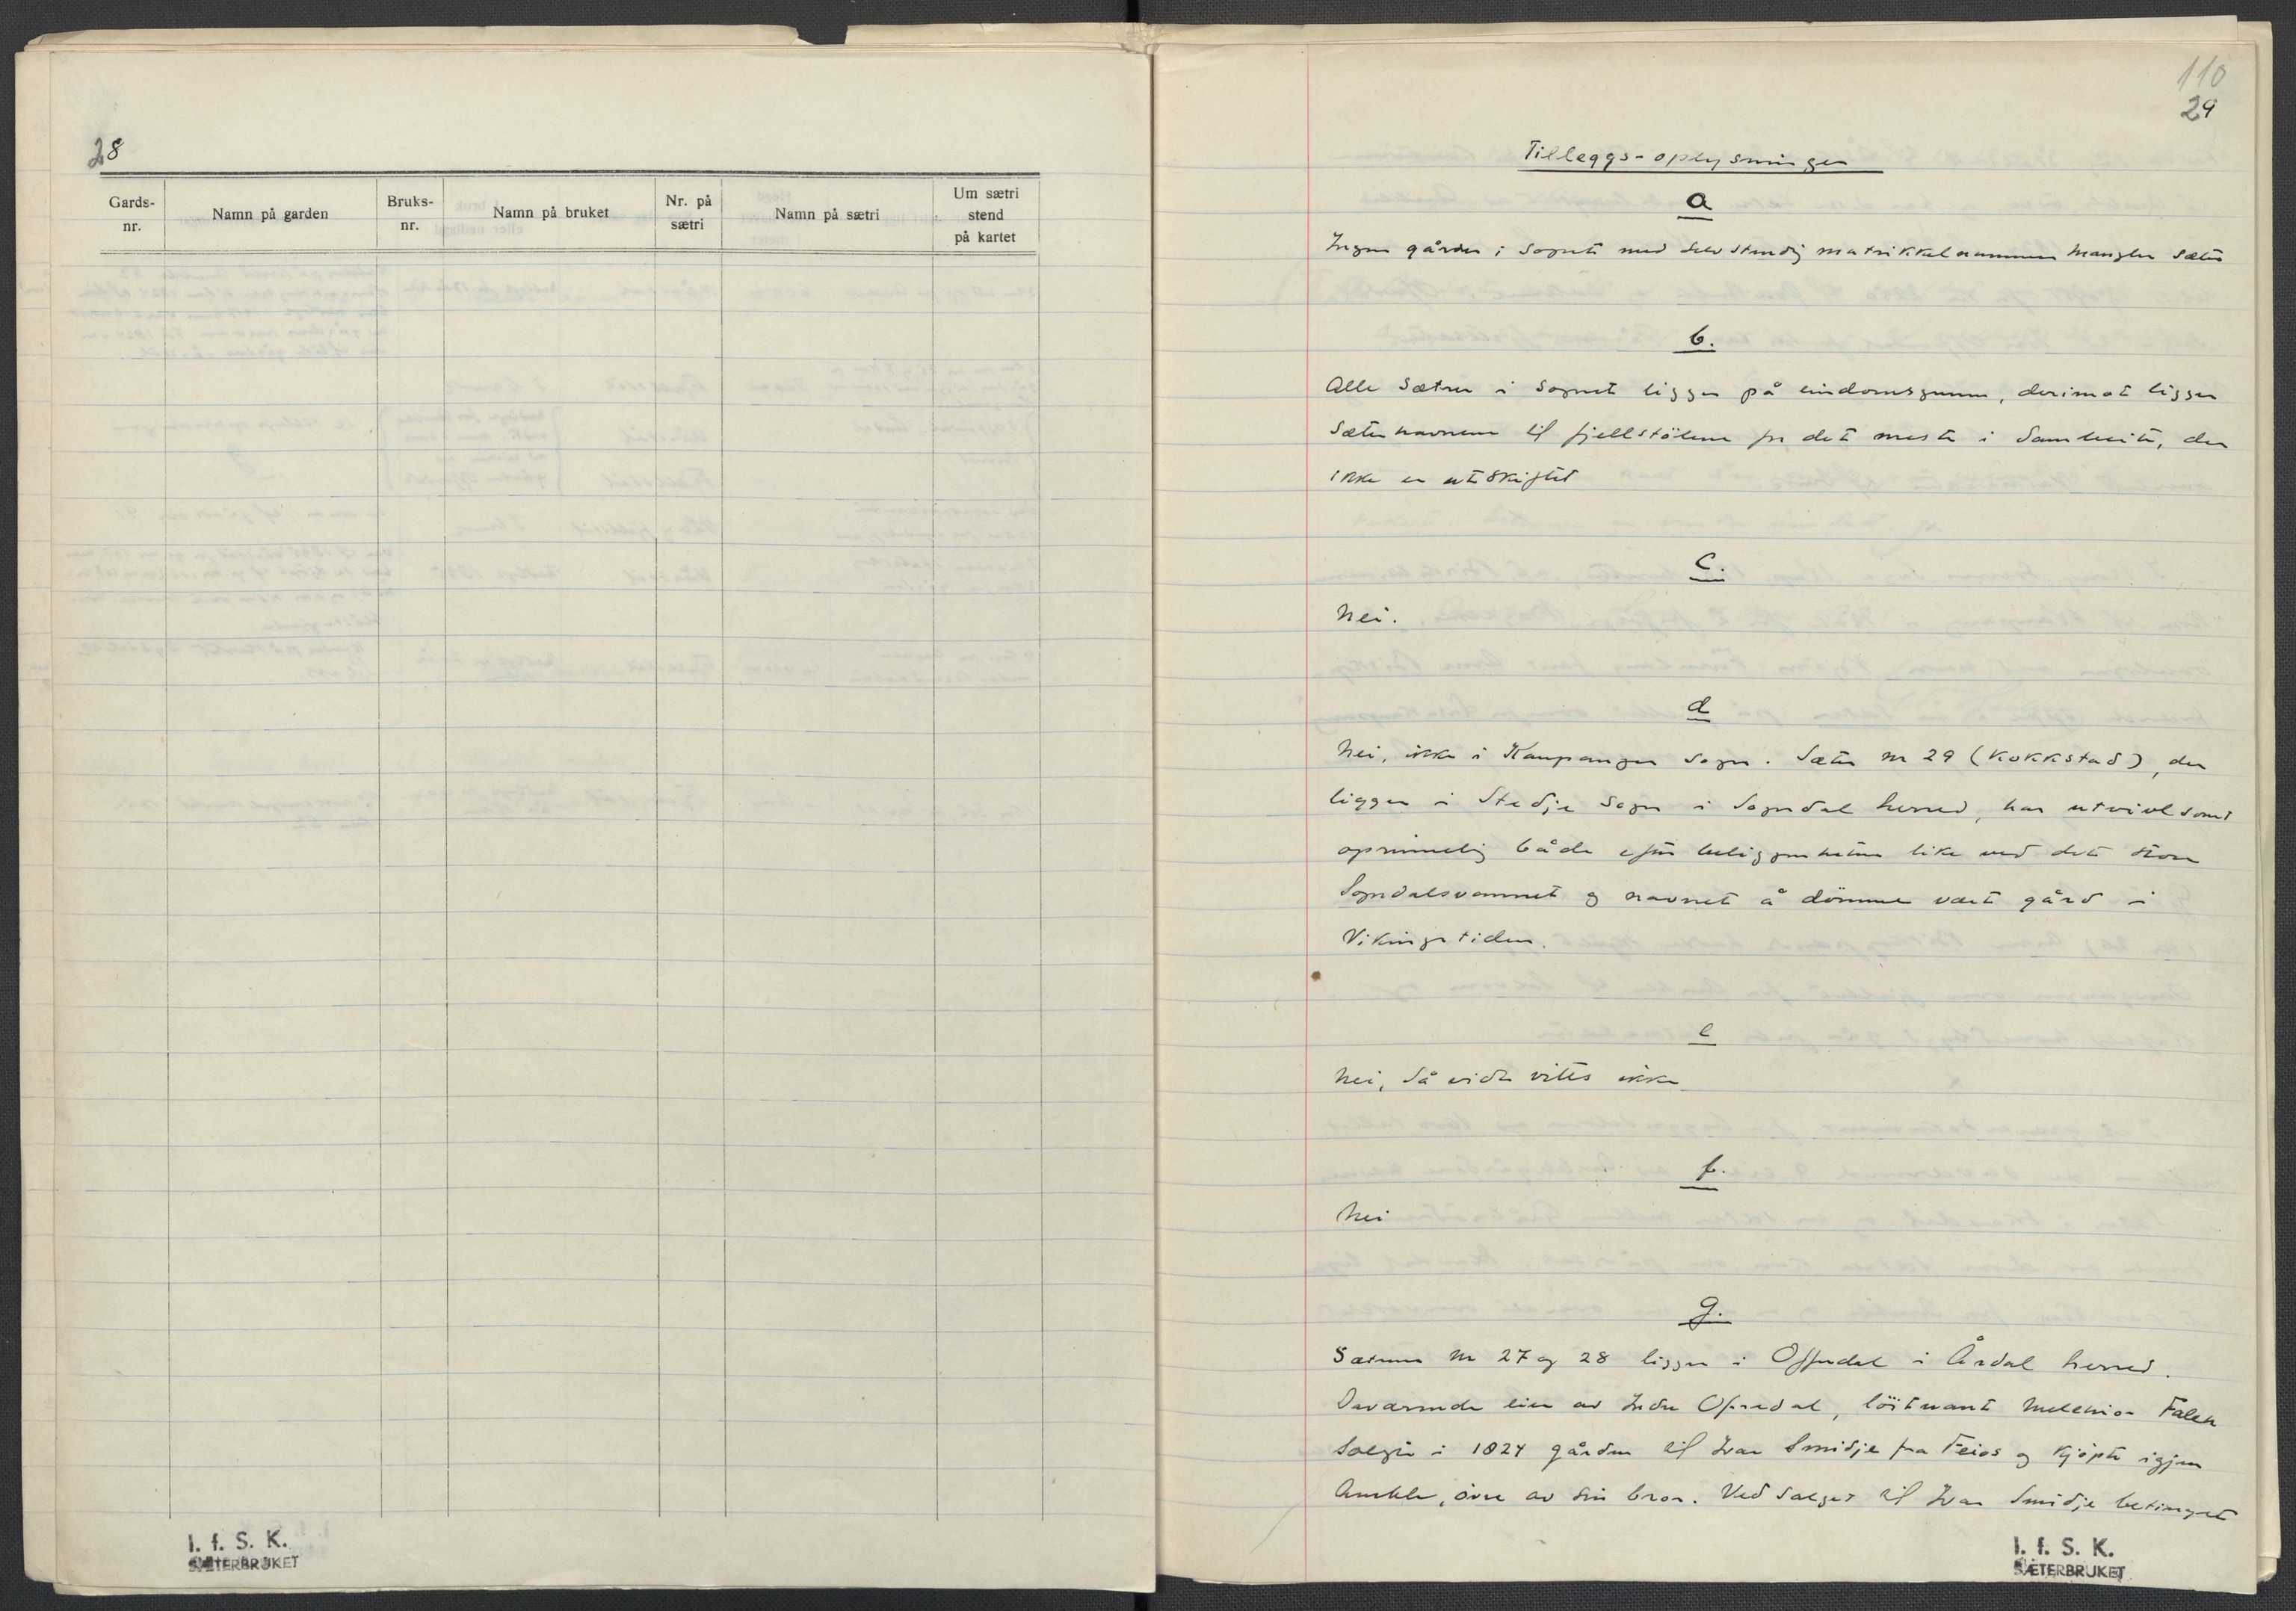 28
Gards-nr.
Namn på garden
Bruks-nr.
Namn på bruket
Nr. på sætri
Namn på sætri
Um sætri stend på kartet
I. f. S. K.
SÆTERBRUKET
110
29
Tilleggs-oplysninger
a
Ingen gårder i sognet med selvstendig matrikkelnummer mangler sæter
b.
Alle sætrer i sognet ligger på eindomsgrunn, derimot ligger
sæterhavnene til fjellstölene for det meste i sambeite, der
ikke er utskiftet
c.
Nei.
d
Nei, ikke i Kaupanger sogn. Sæter nr 29 (Kokkstad), der
ligger i Stedje sogn i Sogndal herred, har utvivlsomt
oprinnelig både efter beliggenheten like ved det store
Sogndalsvannet og navnet å dömme vært gård i
Vikingetiden.
e
Nei, så vidt vites ikke
f.
Nei
g.
Sætrene nr 27 og 28 ligger i Offerdal i Årdal herred.
Daværende eier av Indre Ofredal, löitnant Melchior Falch
solgte i 1824 gården til Ivar Smidje fra Feios og kjöpte igjen
Amble, övre av sin bror. Ved salget til Ivar Smidje betinget
I. f. S. K.
SÆTERBRUKET